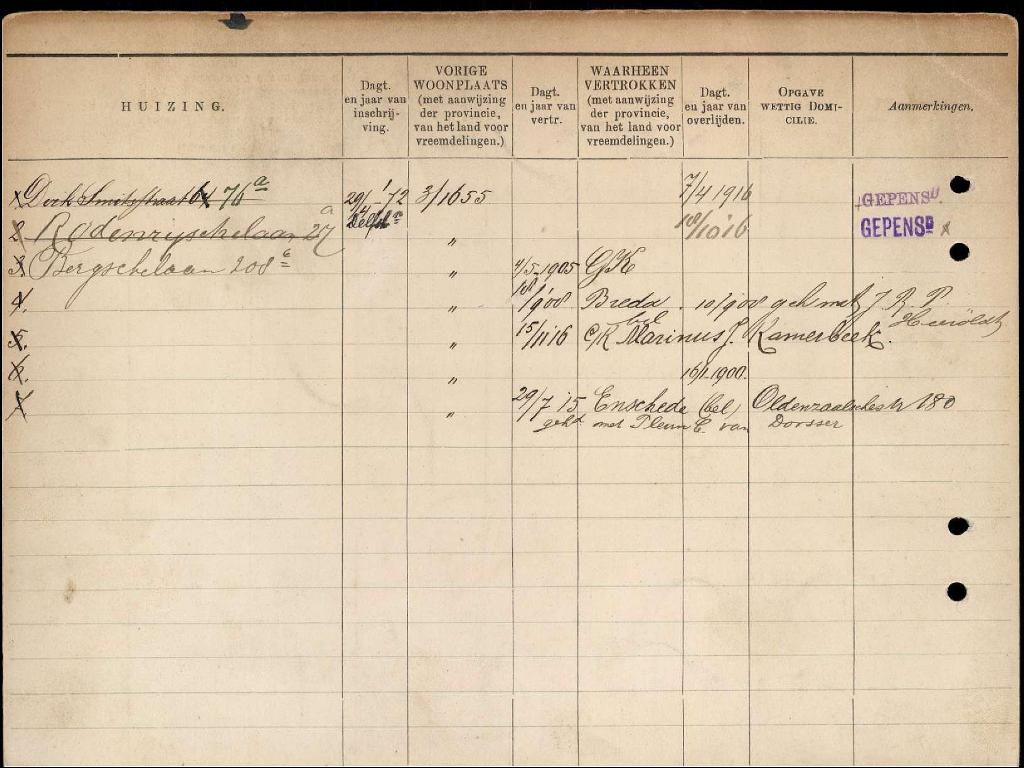 HUIZING.
Dagt. en jaar van inschrijving.
VORIGE WOONPLAATS (met aanwijzing der provincie, van het land voor vreemdelingen.)
Dagt. en jaar van vertr.
WAARHEEN VERTROKKEN (met aanwijzing der provincie, van het land voor vreemdelingen.)
Dagt. en jaar van overlijden.
OPGAVE WETTIG DOMICILIE.
Aanmerkingen.
1. Dirk Smitsstraat 64 76a 29/1 72 3/1655 7/4 1916 GEPENSD.
Delft
2. Rodenrijschelaan 27a " 18/10'16 GEPENSD x
3. Bergschelaan 208c " 4/5-1905 GK
4. " 18/1'908 Breda. 10/'908 geh met J. R. P.
5. " 15/11'16 G/K bel Marinus J. Kamerbeek.
6. " 16/1.1900.
" 29/7 15 Enschede (bel) Oldenzaalschestr 180
gehd met Pleun C. van Dorsser